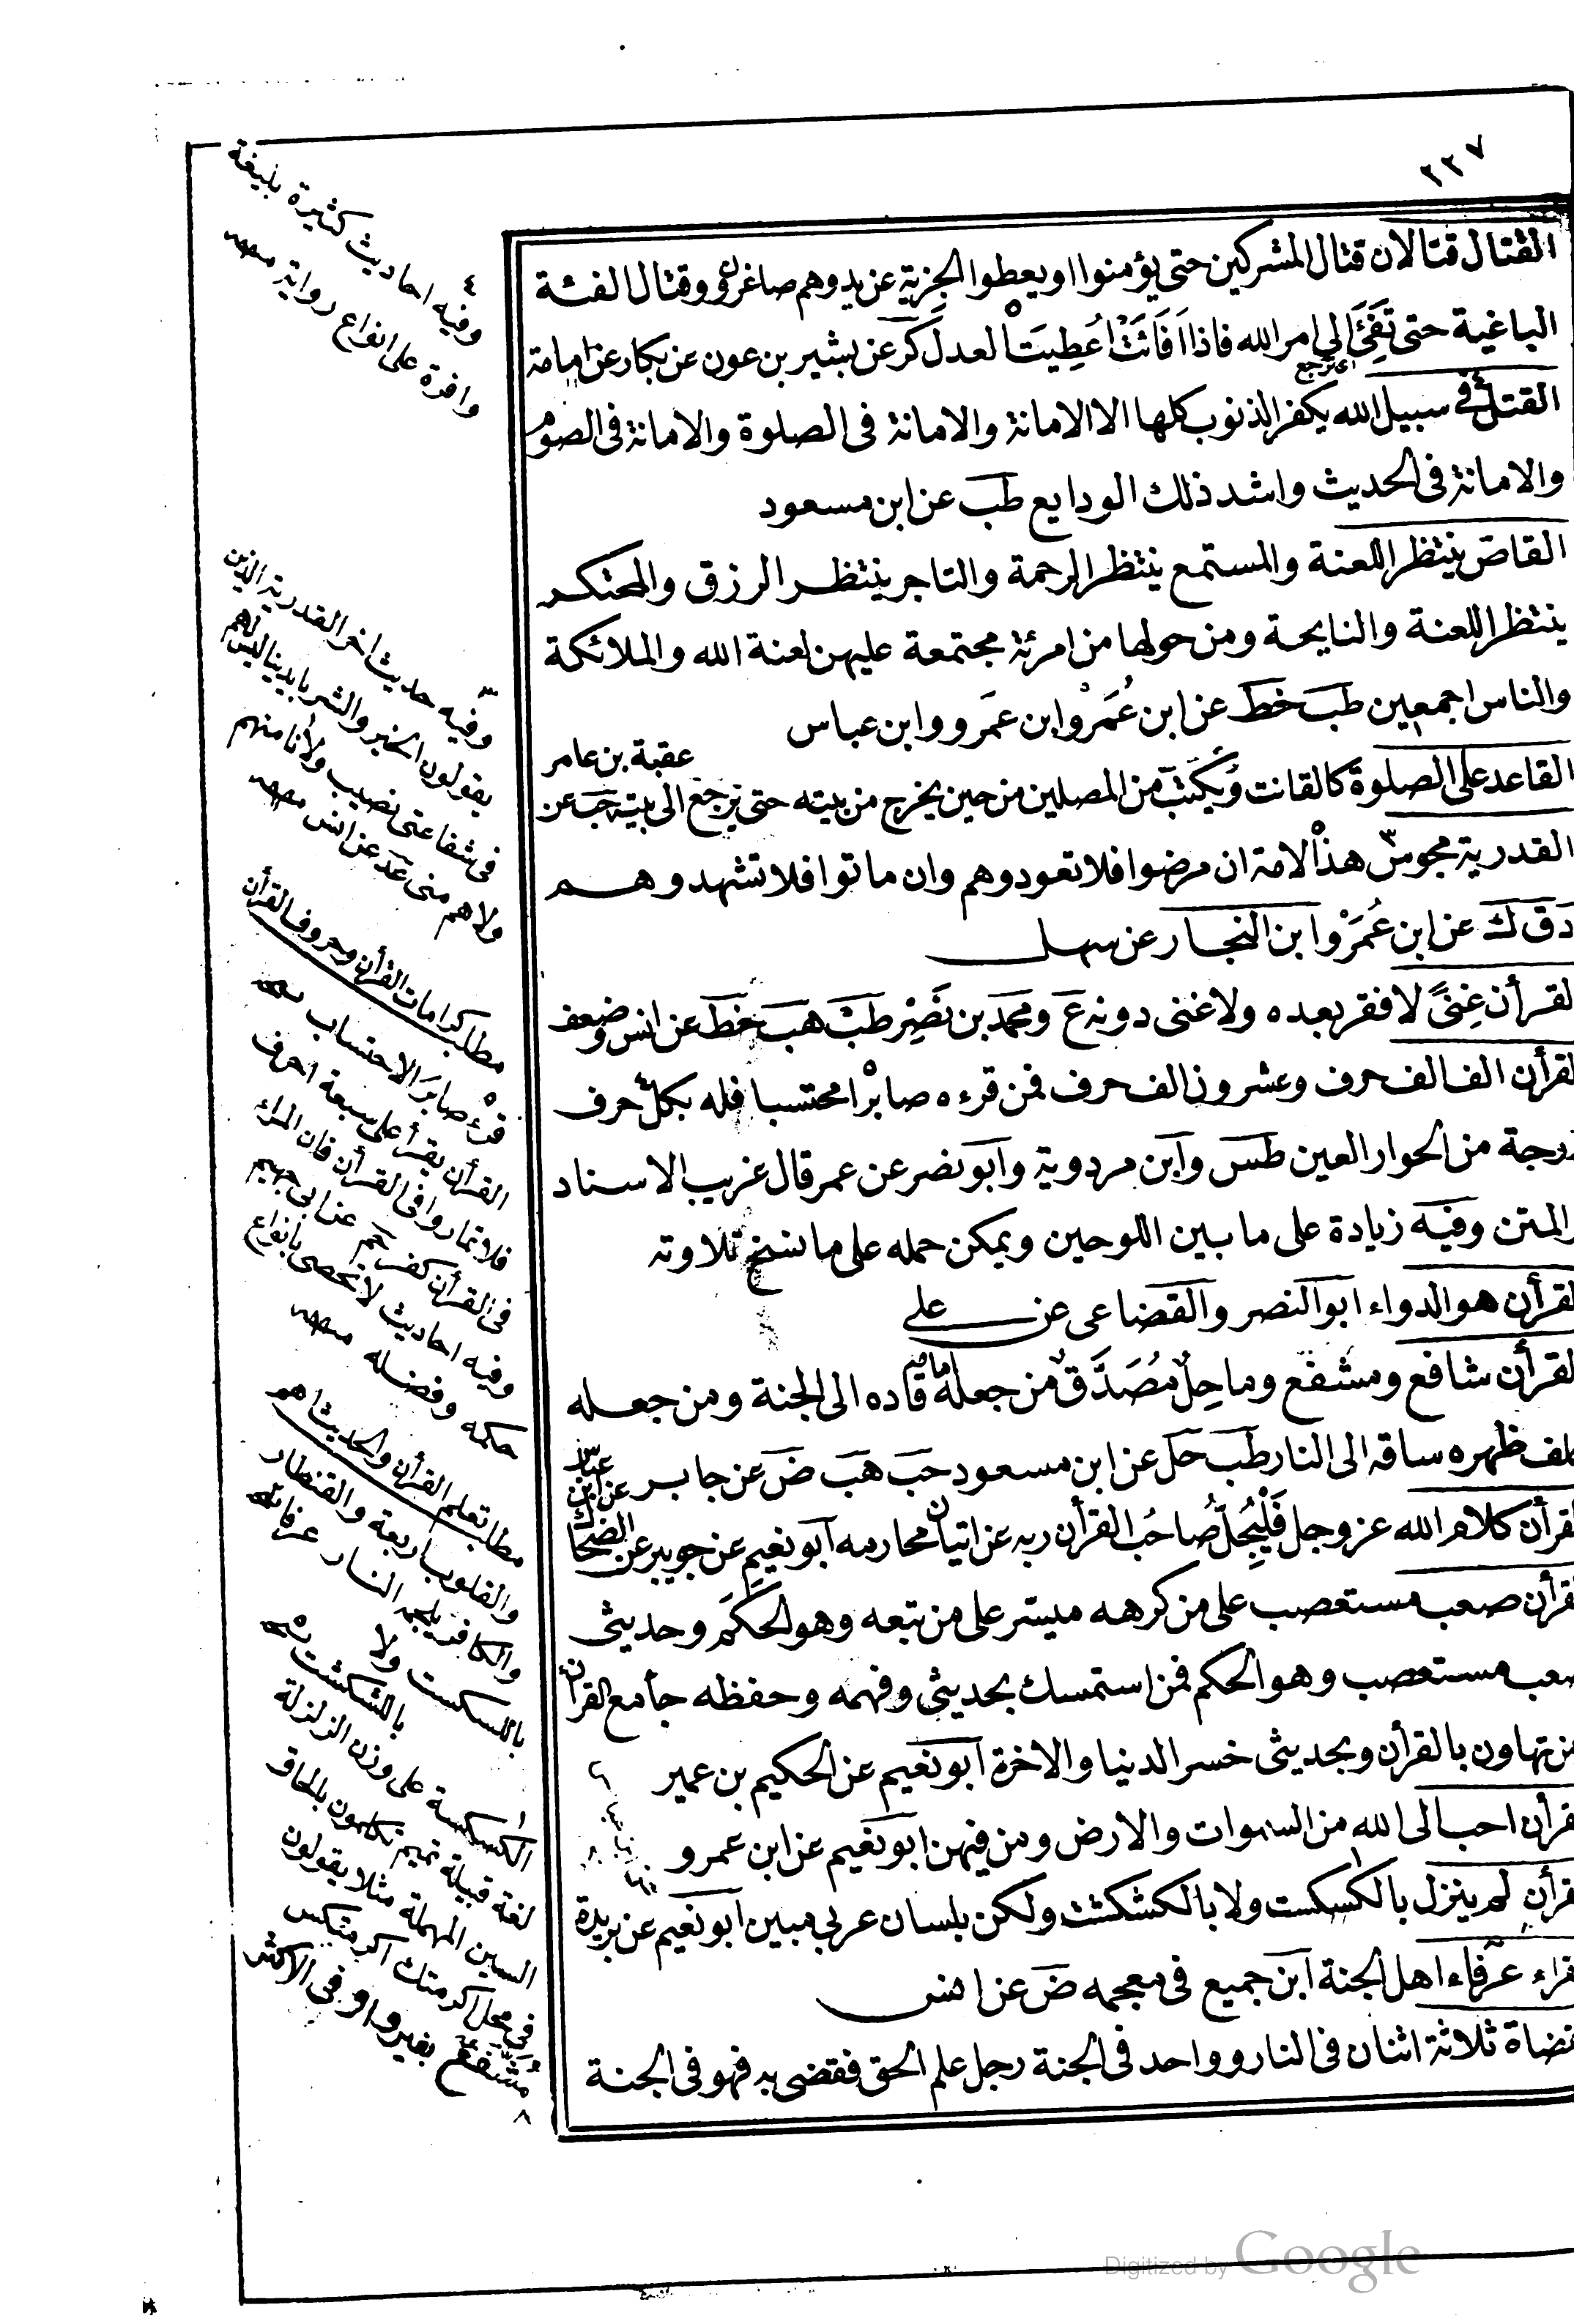 ٢٢٧
القتال قتالان قتال المشركين حتى يؤمنوا او يعطوا الجزية عن يد وهم صاغرون وقتال الفئة
الباغية حتى تَفِئَ الى امر الله فاذا فَائَتْ اُعطِيَتْ العدل كر عن بشير بن عون عن بكار عن امامة
اى ترجع
القتل فى سبيل الله يكفر الذنوب كلها الا الامانة والامانة فى الصلوة والامانة فى الصوم
والامانة فى الحديث واشد ذلك الودايع طب عن ابن مسعود
القاص ينتظر اللعنة والمستمع ينتظر الرحمة والتاجر ينتظر الرزق والمحتكر
ينتظر اللعنة والنايحة ومن حولها من امرئة مجتمعة عليهن لعنة الله والملائكة
والناس اجمعين طب خط عن ابن عُمَرْ وابن عَمَرو وابن عباس
القاعد على الصلوة كالقانت وَيُكتَبُ من المصلين من حين يخرج من بيته حتى يرجع الى بيته حب عن
عقبة بن عامر
القدرية مجوس هذه الامة ان مرضوا فلا تعودوهم وان ماتوا فلا تشهدوهم
د ق ك عن ابن عُمَرْ وابن النجار عن سهل
لقرأن غِنىً لا فقر بعده ولا غنى دونه ع ومحمد بن نَصْر طب هب خط عن انس وضعف
لقرأن الف الف حرف وعشرون الف حرف فمن قرءه صابرا محتسبا فله بكل حرف
درجة من الحوار العين طس وابن مردوية وابو نصر عن عمر قال غريب الاسناد
المتن وفيه زيادة على ما بين اللوحين ويمكن حمله على ما نسخ تلاوته
لقرأن هو الدواء ابو النصر والقضاعى عن على
لقرأن شافع ومشفع وماحِلٌ مُصَدَّق من جعله امامه قاده الى الجنة ومن جعله
لف ظهره ساقه الى النار طب حل عن ابن مسعود حب هب ض عن جابر
لقرأن كلام الله عز وجل فَلْيُجِلَّ صاحُب القرأن ربه عن اتيان محارمه ابو نعيم عن جويبر عن الضحاك
عن ابن عباس
لقرأن صعب مستعصب على من كرهه ميسر على من تبعه وهو الحَكَم وحديثى
صعب مستعصب وهو الحكم فمن استمسك بحديثى وفهمه وحفظه جأ مع القرأن
من تهاون بالقرأن وبحديثى خسر الدنيا والاخرة ابو نعيم عن الحكيم بن عمير
قرأن احب الى الله من السموات والارض ومن فيهن ابو نعيم عن ابن عمرو
قرأن لم ينزل بالكسكست ولا بالكشكشت ولكن بلسان عربى مبين ابو نعيم عن بريدة
قراء عرفاء اهل الجنة ابن جميع فى معجمه ض عن انس
قضاة ثلاثة اثنان فى النار وواحد فى الجنة رجل علم الحق فقضى به فهو فى الجنة
٤
وفيه احاديث كثيرة بليغة
وافرة على انواع رواية
٣
وفيه حديث اخر القدرية الذين
يقولون الخير والشر بايدينا ليس لهم
فى شفاعتى نصيب ولا أنا منهم
ولا هم منى عد عن انس
مطلب كرامات القرأن وحروف القرأن
٥
صابرَ الاحتساب
القرأن يقرأ على سبعة احرف
فلا تماروا فى القرأن فان المراء
فى القرأن كفر حم عن ابى جهيم
وفيه احاديث لا تحصى بانواع
حكمه وفضله
مطلب تعلم القرأن والحديث
والقلوب اربعة والقنطار
والكافر يلجمه النار
بالسكست ولا
بالشكشت
الكسكسة على وزن الزلزلة
لغة قبيلة تميم تكلمون بالحاق
السين المهملة مثلا يقولون
فى محل اكرمتك اكرمتكس
مُشَّفَعٌ بغير واو فى الاكثر
٨
Digitized by Google